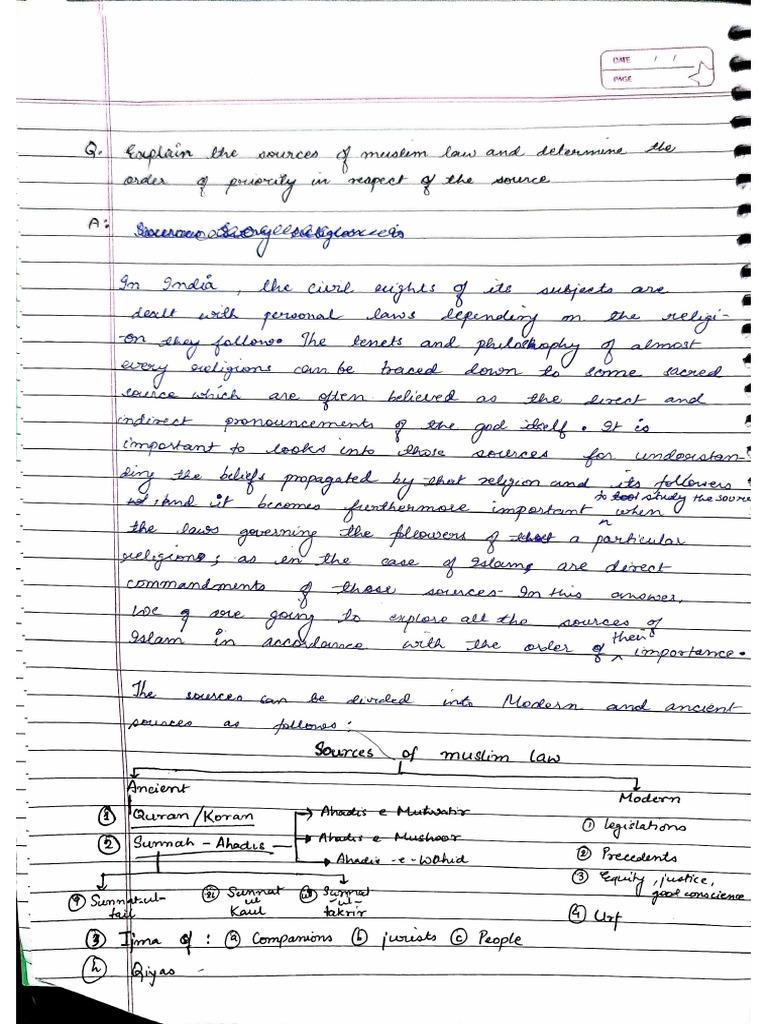 DATE / /
PAGE
Q. Explain the sources of muslim law and determine the
order of priority in respect of the source
A:
In India, the civil rights of its subjects are
dealt with personal laws depending on the religi-
on they follow. The tenets and philosophy of almost
every religions can be traced down to some sacred
source which are often believed as the direct and
indirect pronouncements of the god itself. It is
important to looks into those sources for understan-
ding the beliefs propagated by that religion and its followers
to study the source
and it becomes furthermore important when
the laws governing the followers of a particular
religion, as in the case of Islam, are direct
commandments of those sources. In this answer,
we are going to explore all the sources of
Islam in accordance with the order of their importance.
The sources can be divided into Modern and ancient
sources as follows:
Sources of muslim law
Ancient
Modern
① Quran/Koran
② Sunnah - Ahadis
Ahadis e Mutwatir
Ahadis e Mushoor
Ahadis -e- Wahid
① legislations
② Precedents
③ Equity, justice,
good conscience
④ Urf
Sunnat-ul-
fail
Sunnat
ul
Kaul
Sunnat
-ul-
takrir
③ Ijma of : ⓐ Companions ⓑ jurists ⓒ People
Qiyas